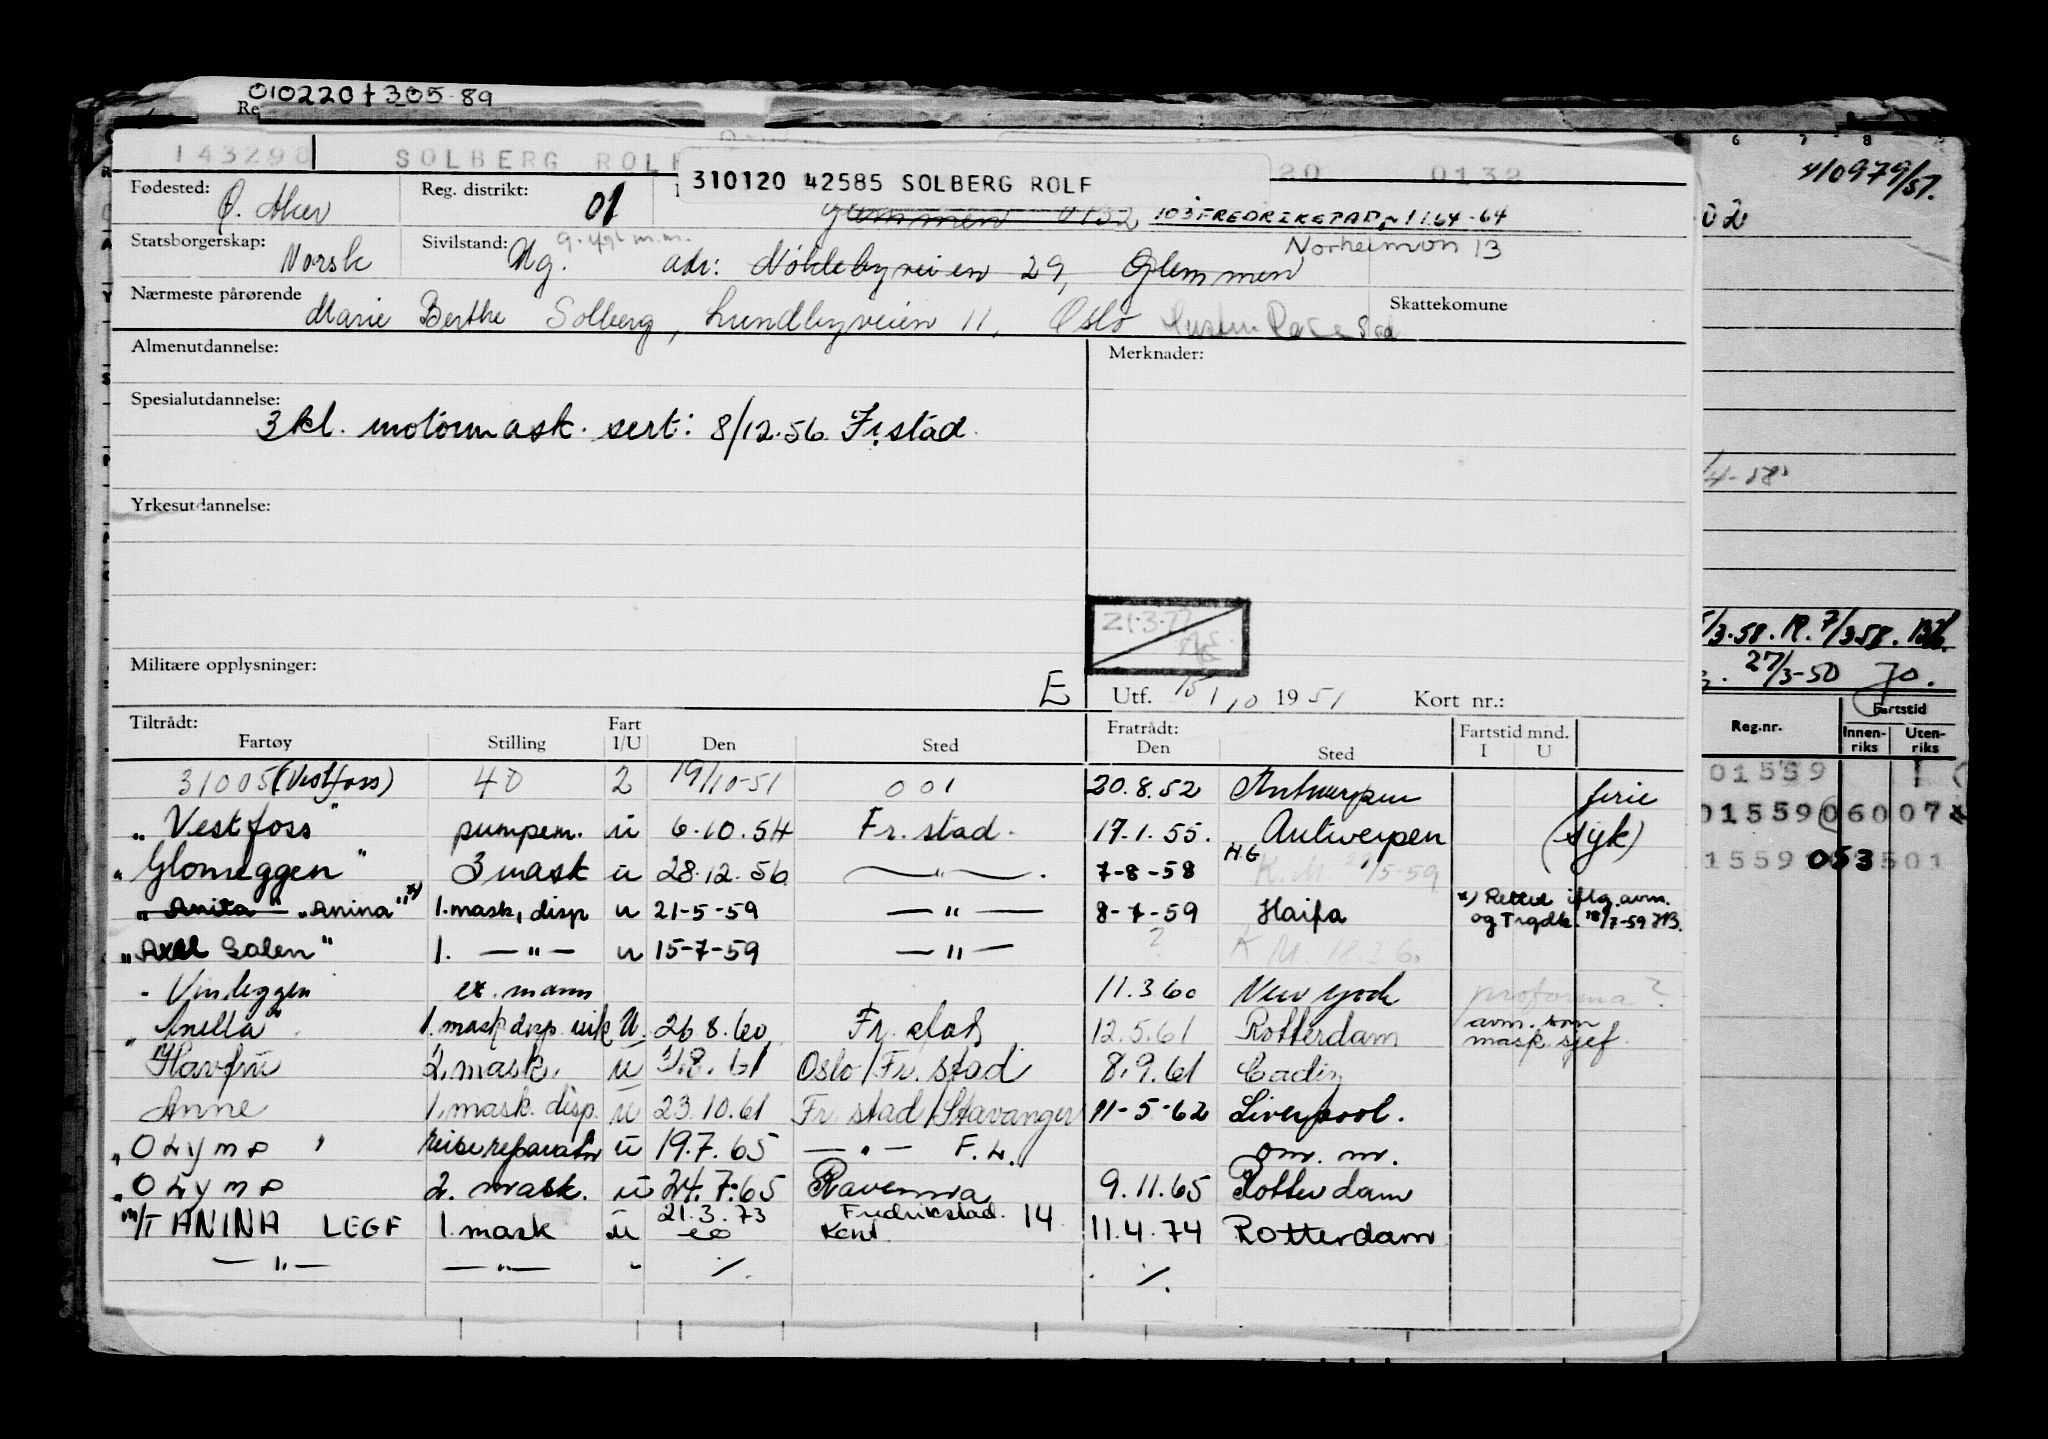 010220+305-89
Re
143290 SOLBERG ROLF 20 0132
310120 42585 SOLBERG ROLF
6 7 8
410979/57.
Fødested: Ø. Aker Reg. distrikt: 01
Glemmen 0132 103 FREDRIKSTAD 1.1.64-64
Statsborgerskap: Norsk Sivilstand: Ug. adr: Nøklebyveien 29, Glemmen
Norheimvn 13
Nærmeste pårørende Marie Berthe Solberg, Lundbyveien 11, Oslo
Skattekomune
Almenutdannelse:
Merknader:
Spesialutdannelse:
3 kl. motormask. sert: 8/12.56 Fr.stad.
/4-58
Yrkesutdannelse:
21.3.77
/3.58. R. 7/3 58.
27/3-50 70.
Militære opplysninger:
E
Utf. 15/10 1951 Kort nr.:
Tiltrådt: Fratrådt:
Fartøy Stilling Fart I/U Den Sted Den Sted Fartstid mnd. I U
Reg.nr. Fartstid Innen-riks Uten-riks
31005 (Vestfoss) 40 2 19/10-51 001 20.8.52 Antwerpen ferie
01559 1
"Vestfoss" pumpem. u 6.10.54 Fr.stad. 17.1.55. Antwerpen (syk)
01559 06007
"Glomeggen" 3 mask u 28.12.56 — " — 7-8-58 HG K.M. /5-59
1559 053 501
"Anita" "Anina" x) 1. mask, disp u 21-5-59 — " — 8-7-59 Haifa x) Rettet iflg. avm. og Trgdk. 18/7-59
"Axel Galen" 1. — " — u 15-7-59 — " — ? K.M. 18.3.60
" Vindeggen ex. mann 11.3.60 New York proforma?
"Anella" 1. mask disp vik U. 26.8.60 Fr.stad 12.5.61 Rotterdam avm. som mask. sjef.
Havfru 2. mask. u 31.8.61 Oslo/Fr.stad 8.9.61 Cadiz
Anne 1. mask. disp. u 23.10.61 Fr.stad/Stavanger 11-5-62 Liverpool.
"Olymp" reisereparatør u 19.7.65 — " — F.L. om. m.
"Olymp 2. mask. u 24.7.65 Ravenna 9.11.65 Rotterdam
M/T ANINA LEGF 1. mask u 21.3.73 Fredrikstad Kont. 14 11.4.74 Rotterdam
— " — — " — " ⁒ ⁒